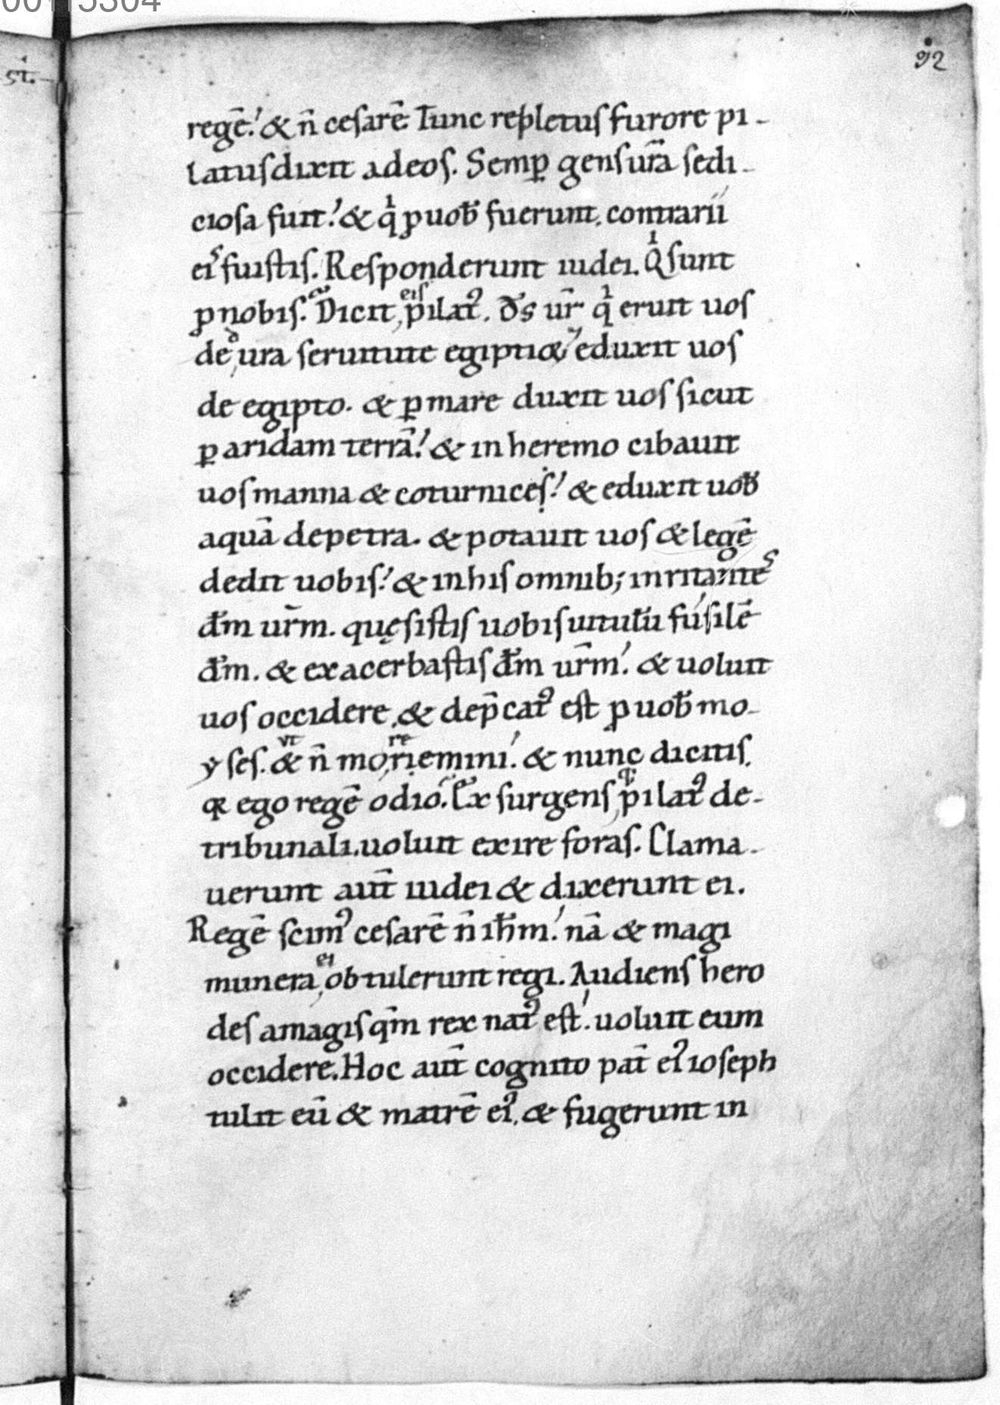 92
regē! & n̄ cesarē. Tunc repletus furore pi-
latus dixit ad eos. Semp̲ gens ura̅ sedi-
ciosa fuit! & qͥ ꝓ uob̄ fuerunt. contrarii
eis fuistis. Responderunt iudei. Qͥ sunt
ꝓ nobis. Dicit eis pilatꝰ. d̄s ur̄ qͥ eruit uos
de dura seruitute egiptiorum eduxit uos
de egipto. & ꝑ mare duxit uos sicut
ꝑ aridam terrā! & in heremo cibauit
uos manna & coturnices! & eduxit uob̄
aquā de petra. & potauit uos & legē
dedit uobis! & in his omnib; inritantes
dm̄ urm̄. quęsistis uobis uitulū fusilē
dm̄. & exacerbastis dm̄ urm̄! & uoluit
uos occidere, & dep̄catꝰ est ꝓ uob̄ mo-
yses. & ut n̄ moriremini! & nunc dicitis.
qꝛ ego regē odio. Exsurgens pilatꝰ de-
tribunali. uoluit exire foras. Clama-
uerunt aut̄ iudei & dixerunt ei.
Regē scimꝰ cesarē n̄ ihm̄! nā & magi
munera ei obtulerunt regi. Audiens hero
des a magis qm̄ rex natꝰ est! uoluit eum
occidere. Hoc aut̄ cognito pat̄ eiꝰ ioseph
tulit eū & matrē eiꝰ. & fugerunt in